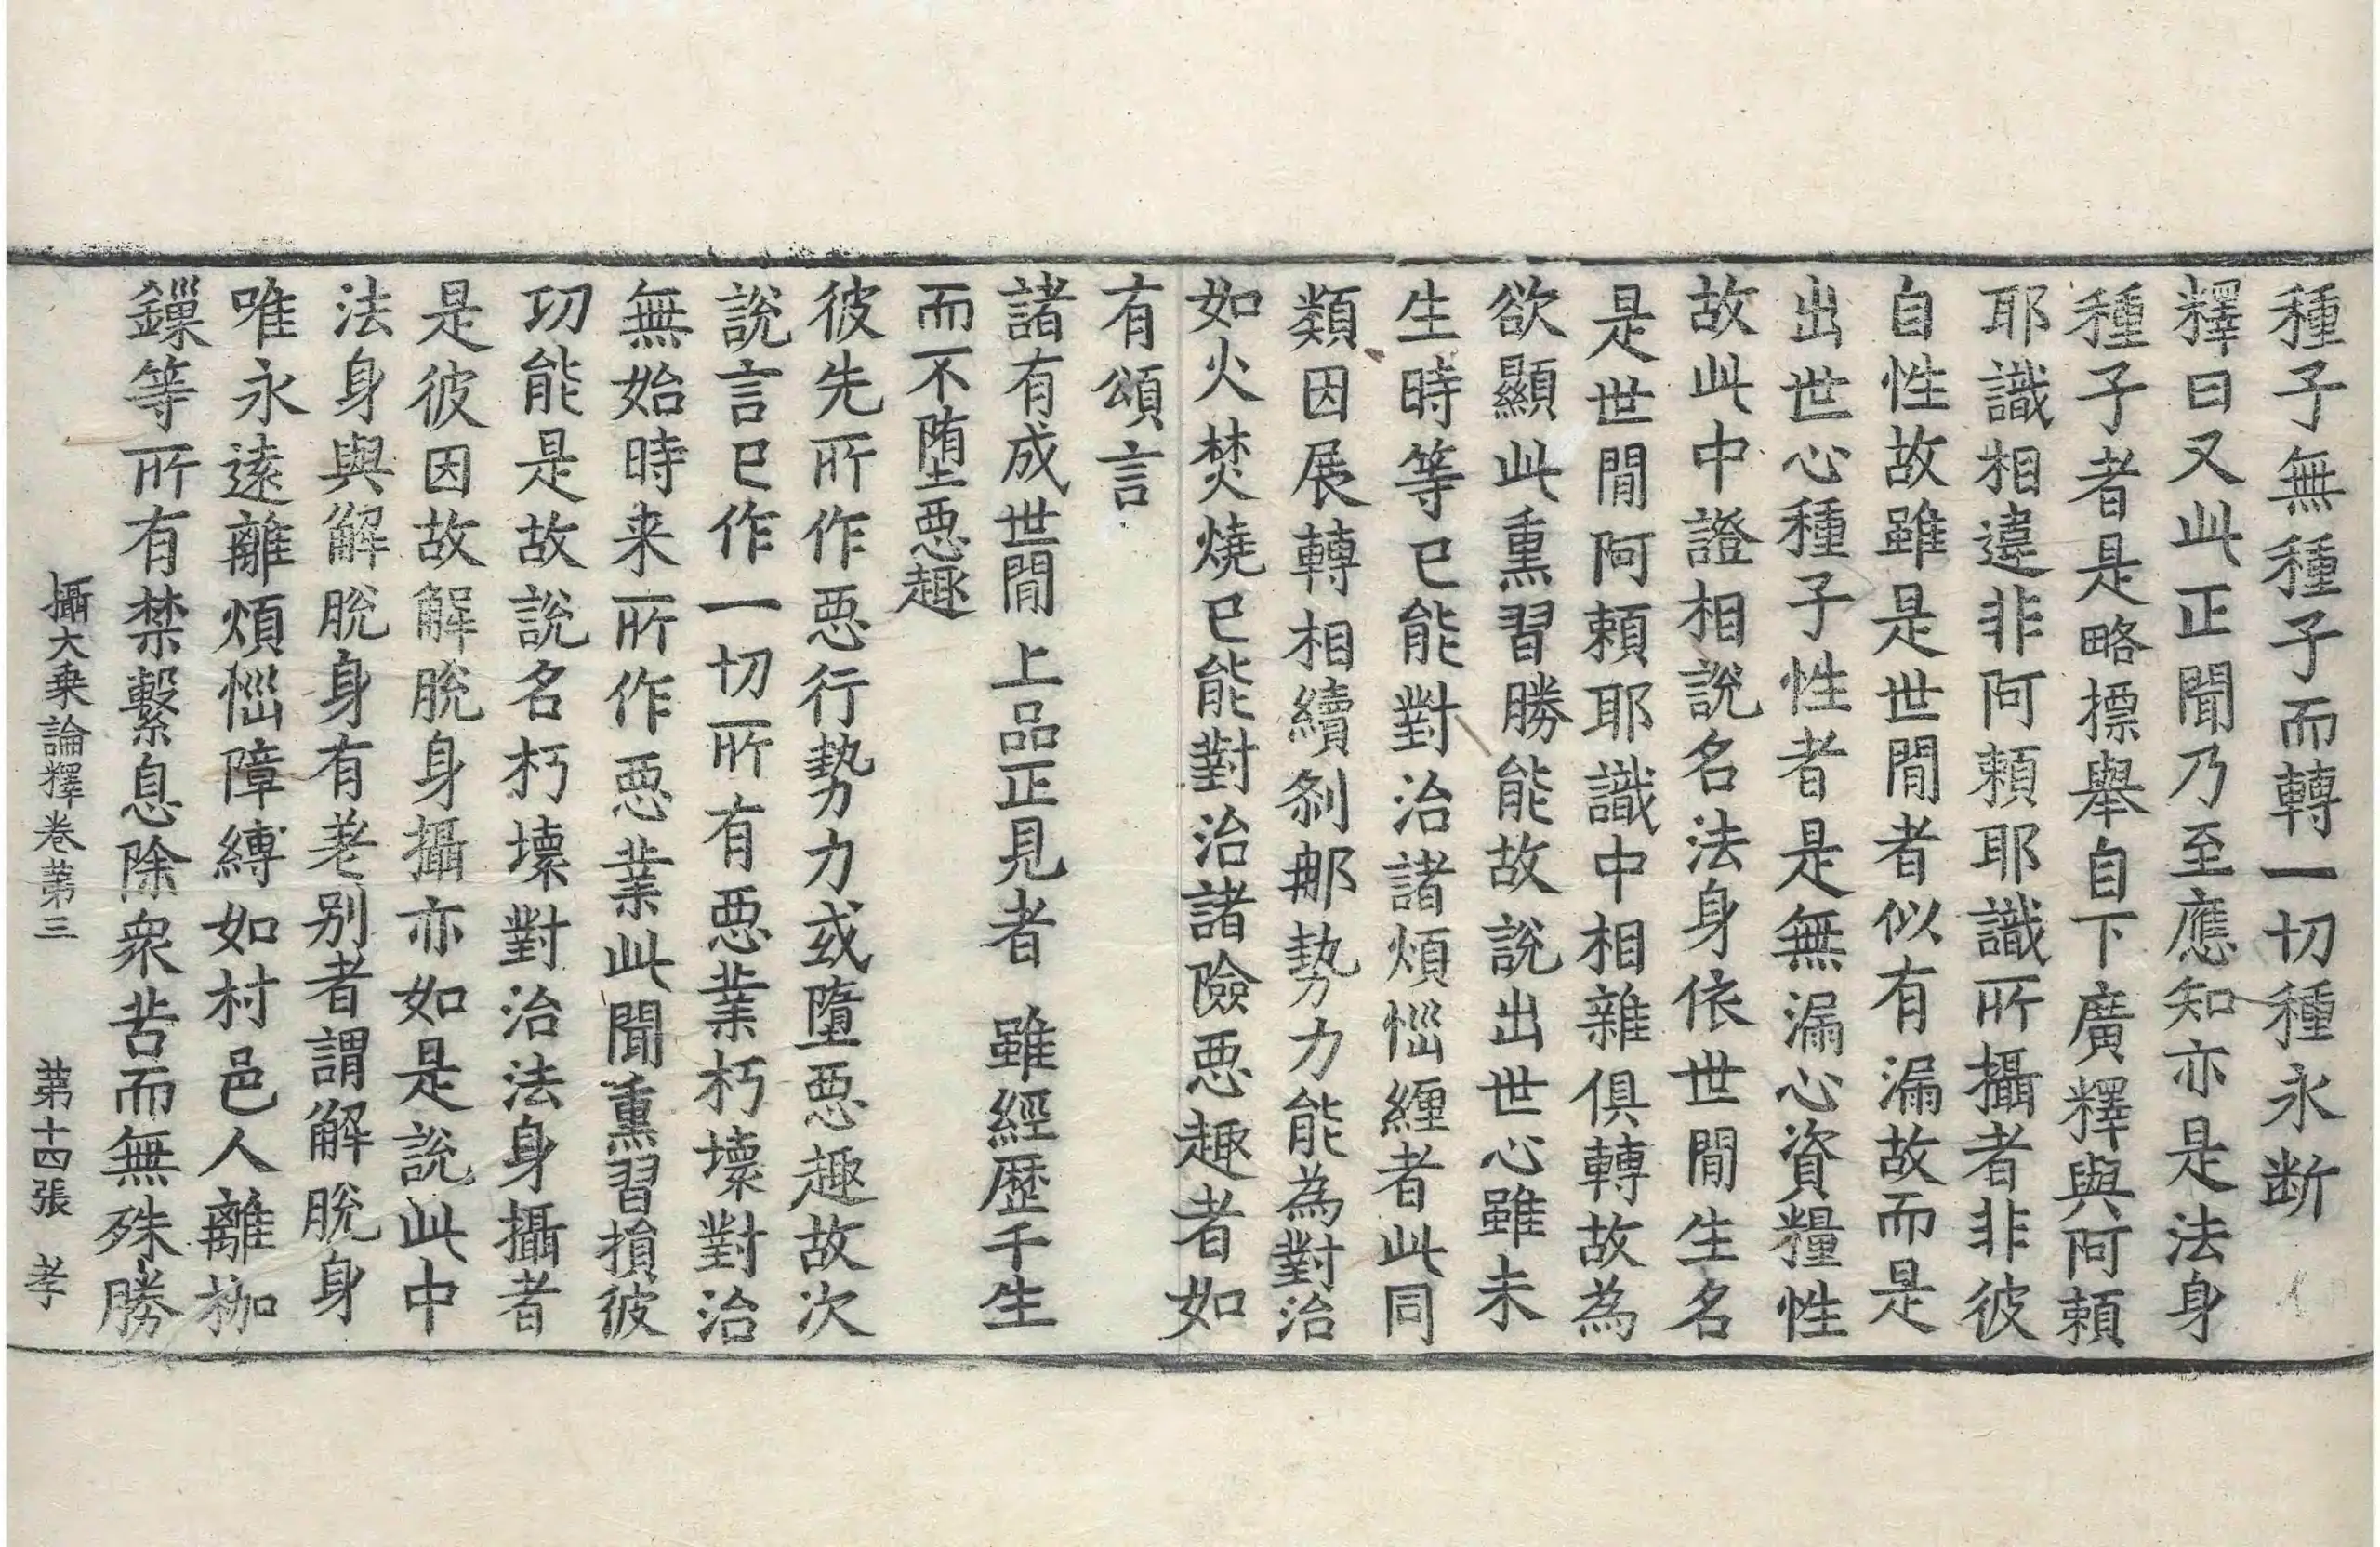 種子無種子而轉一切種永断
釋曰又此正聞乃至應知亦是法身
種子者是略摽舉自下廣釋與阿頼
耶識相違非阿頼耶識所攝者非彼
自性故雖是世閒者似有漏故而是
出世心種子性者是無漏心資糧性
故此中證相説名法身依世閒生名
是世閒阿頼耶識中相雜俱轉故為
欲顯此熏習勝能故説出世心雖未
生時等已能對治諸煩惱纏者此同
類因展轉相續剎那勢力能為對治
如火焚燒已能對治諸險惡趣者如
有頌言
諸有成世閒 上品正見者 雖經歷千生
而不堕惡趣
彼先所作惡行勢力或墮惡趣故次
説言已作一切所有惡業朽壞對治
無始時来所作惡業此聞熏習損彼
功能是故説名朽壞對治法身攝者
是彼因故解脫身攝亦如是説此中
法身與解脫身有差別者謂解脫身
唯永遠離煩惱障縛如村邑人離枷
鏁等所有禁繫息除衆苦而無殊勝
攝大乗論釋卷苐三 苐十四張 孝